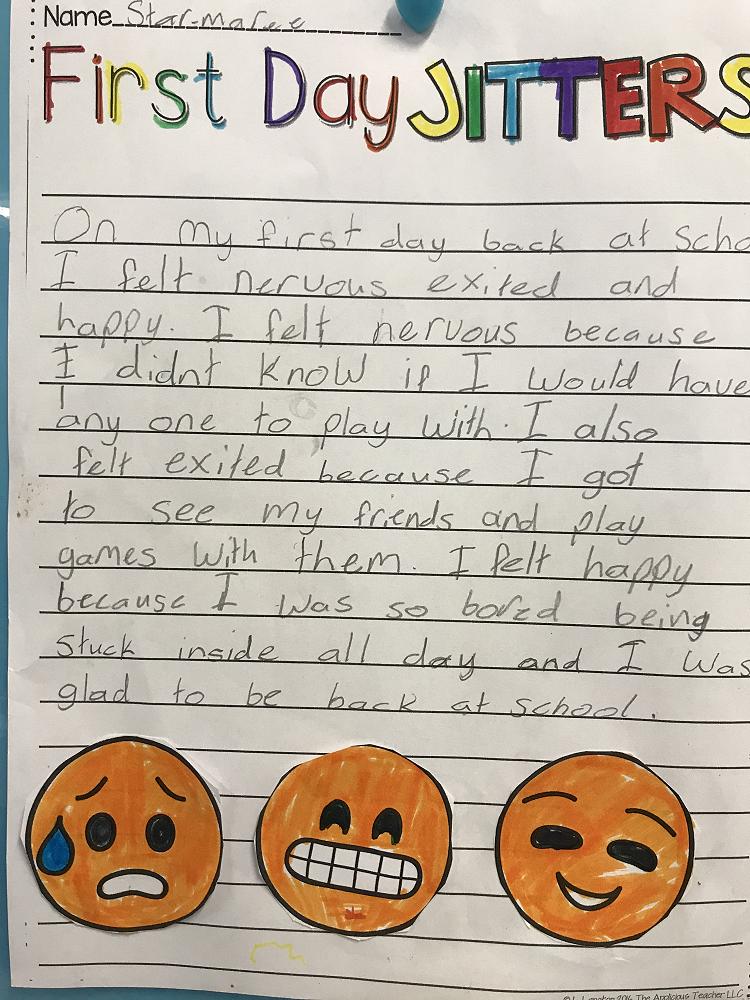 Name Star-maree
First Day JITTERS
On my first day back at Scho
I felt nervous exited and
happy. I felt nervous because
I didnt know if I would have
any one to play with. I also
felt exited because I got
to see my friends and play
games with them. I felt happy
because I was so bored being
stuck inside all day and I was
glad to be back at school.
2016 The Applicious Teacher LLC